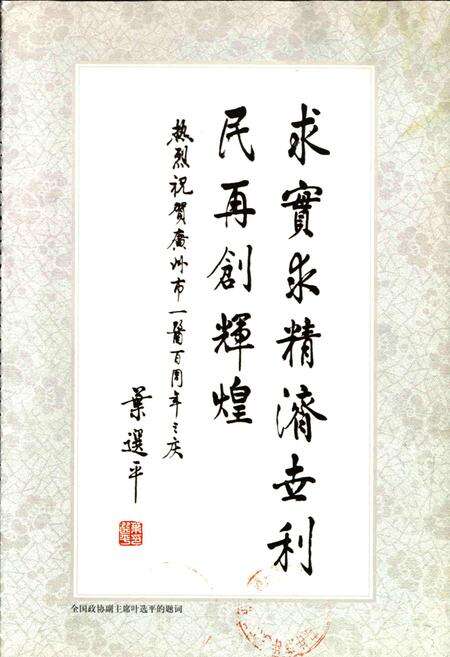 求實求精濟世利
民再創輝煌
熱烈祝賀廣州市一醫百周年之庆
葉選平
全国政协副主席叶选平的题词